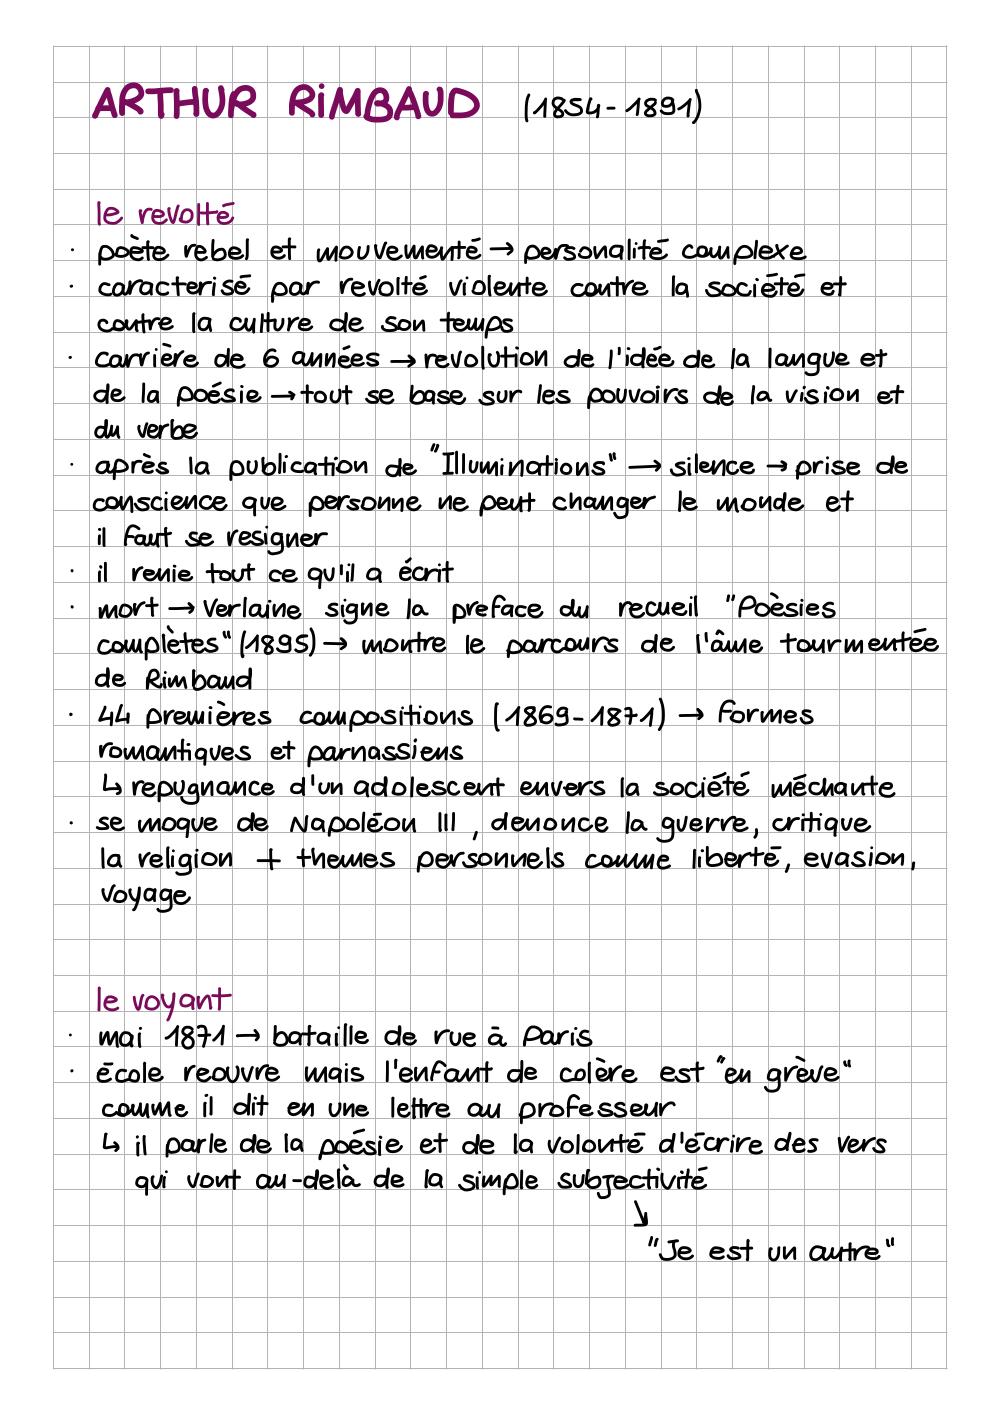 ARTHUR RIMBAUD (1854-1891)
le revolté
· poète rebel et mouvementé → personalité complexe
· caracterisé par revolté violente contre la société et
contre la culture de son temps
· carrière de 6 années → revolution de l'idée de la langue et
de la poésie → tout se base sur les pouvoirs de la vision et
du verbe
· après la publication de "Illuminations" → silence → prise de
conscience que personne ne peut changer le monde et
il faut se resigner
· il renie tout ce qu'il a écrit
· mort → Verlaine signe la preface du recueil "Poèsies
complètes" (1895) → montre le parcours de l'âme tourmentée
de Rimbaud
· 44 premières compositions (1869-1871) → formes
romantiques et parnassiens
↳ repugnance d'un adolescent envers la société méchante
· se moque de Napoléon III, denonce la guerre, critique
la religion + themes personnels comme liberté, evasion,
voyage
le voyant
· mai 1871 → bataille de rue à Paris
· école reouvre mais l'enfant de colère est "en grève"
comme il dit en une lettre au professeur
↳ il parle de la poésie et de la volonté d'écrire des vers
qui vont au-delà de la simple subjectivité
↘
"Je est un autre"